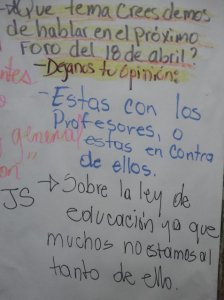 →¿Que tema Crees demos
de hablar en el próximo
Foro del 18 de abril?
-Dejanos tu Opinion:
-Estas con los
Profesores, o
estas en contra
de ellos.
JS → Sobre la ley de
educación ya que
muchos no estamos al
tanto de ello.
antes
general
on"